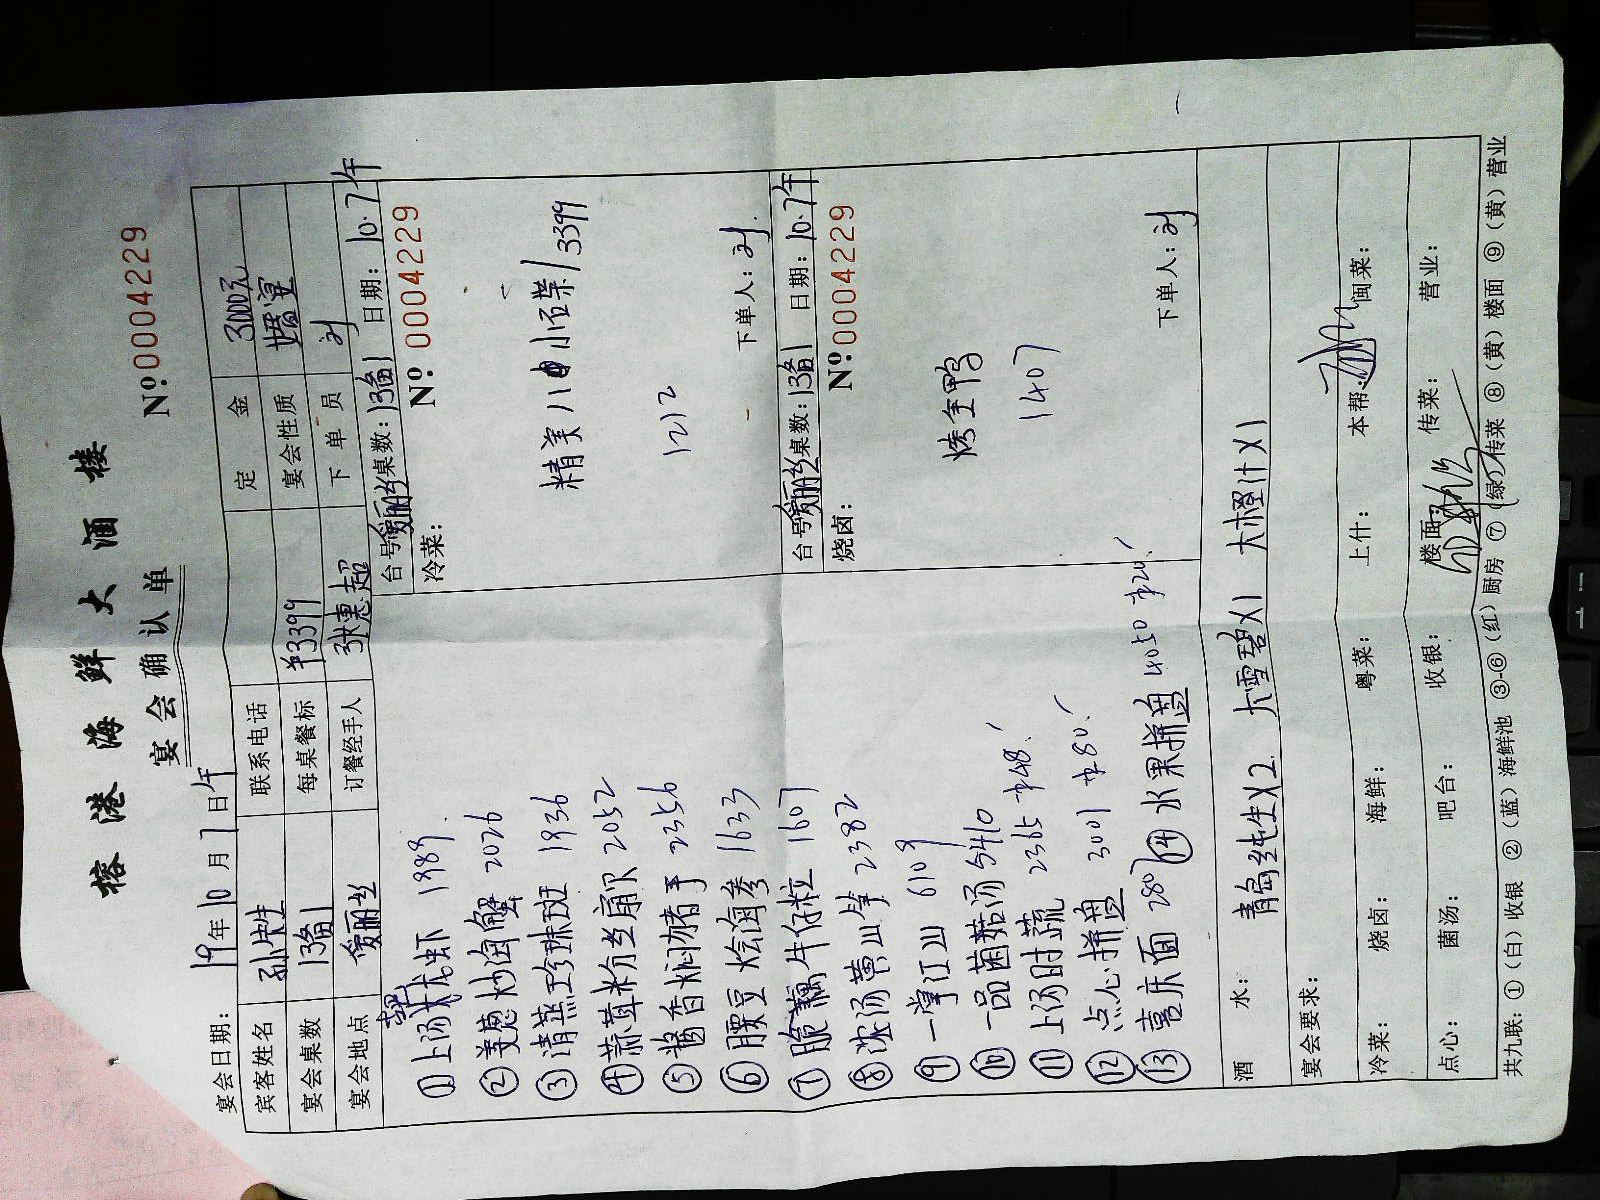 榕港海鲜大酒楼
宴会确认单
Nº:00004229
宴会日期： 19年10月7日午
定金 3000元
宾客姓名 孙先生 联系电话
宴会性质 婚宴
宴会桌数 13备1 每桌餐标 ¥3399
下单员 刘
宴会地点 爱丽丝 订餐经手人 张惠超
台号爱丽丝桌数：13备1 日期：10.7午
冷菜： Nº:00004229
精美八小碟/3399
1212
下单人：刘
台号爱丽丝桌数：13备1 日期：10.7午
烧卤： Nº:00004229
烤全鸭
1407
下单人：刘
① 上汤虾 1989
② 姜葱炒闽蟹 2026
③ 清蒸珍珠斑 1936
④ 蒜茸粉丝扇贝 2052
⑤ 酱香焖猪手 2356
⑥ 腰豆烩闽参 1633
⑦ 脆藕牛仔粒 1607
⑧ 浓汤黄山笋 2382
⑨ 一掌江山 6109
⑩ 一品菌菇汤 5410
⑪ 上汤时蔬 2365 串48!
⑫ 点心拼盘 3001 串80!
⑬ 喜庆面 2801 ⑭ 水果拼盘 4050 串20!
酒水： 青岛纯生X2 大雪碧X1 大橙汁X1
宴会要求：
冷菜： 烧卤： 海鲜： 粤菜： 上什： 本帮： 闽菜：
点心： 菌汤： 吧台： 收银： 楼面： 传菜： 营业：
共九联：①（白）收银 ②（蓝）海鲜池 ③-⑥（红）厨房 ⑦（绿）传菜 ⑧（黄）楼面 ⑨（黄）营业